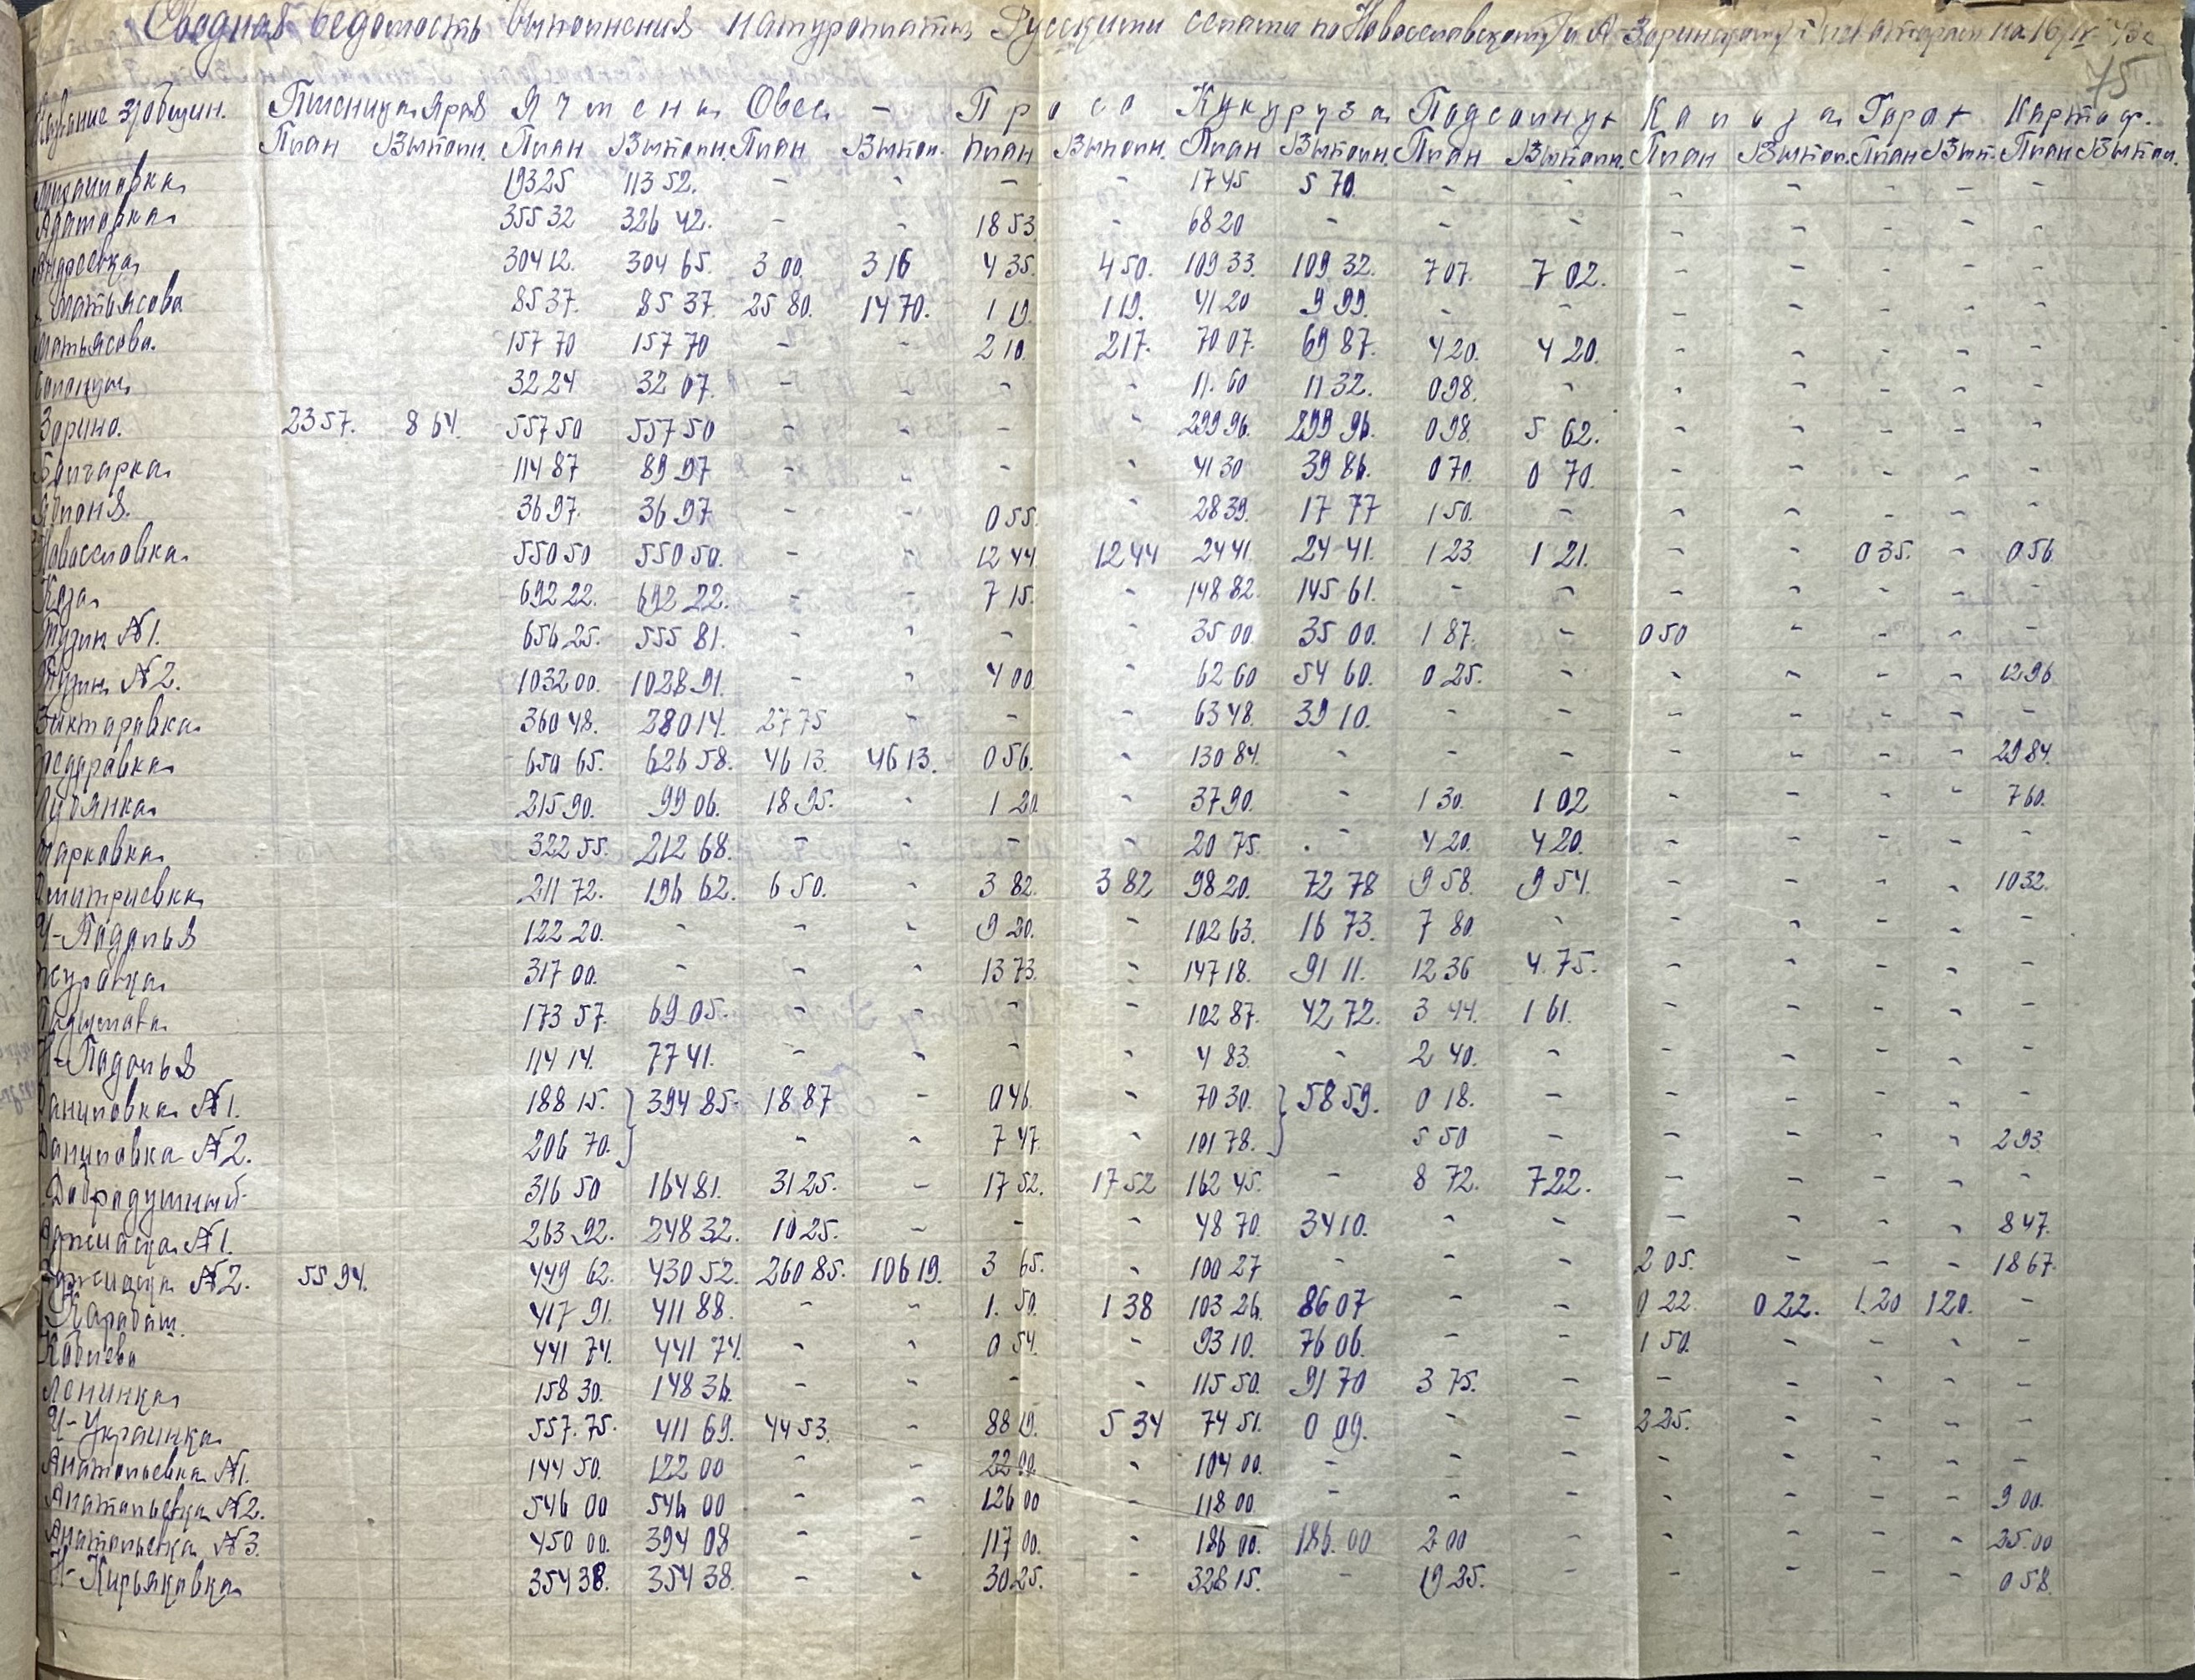 Сводная ведомость выполнения натуроплаты Русскими селами по Новоселовскому и А Заринскому на 16/IX 43 г
75
Название з/общин. Пшеница яров Ячмена Овес - Просо Кукуруза Падсолнух Капуза Горох Картоф.
План Выполн. План Выполн. План Выпол. План Выполн. План Выполн. План Выполн. План Выпол. План Вып. План Выпол.
Михаиловка 193 25 113 52. - - - - 17 45 5 70. - - - - - - - -
Адамовка 355 32 326 42. - - 18 53. - 68 20 - - - - - - - -
Андреевка 304 12. 304 65. 3 00. 3 16 4 35. 4 50. 109 33. 109 32. 7 07. 7 02. - - - - -
Матьясова 85 37. 85 37. 25 80. 14 70. 1 19. 1 19. 41 20 9 99. - - - - - - -
Матьясова. 157 70 157 70 - - 2 10. 2 17. 70 07. 69 87. 4 20. 4 20. - - - - -
32 24 32 07. - - - 11. 60 11 32. 0 98. - - - - - -
Зарино. 23 57. 8 64. 557 50 557 50 - - - - 299 96. 299 96. 0 98. 5 62. - - - - -
Болгарка 114 87 89 97 - - - - 41 30 39 86. 0 70. 0 70. - - - - -
Япония. 36 97. 36 97 - - 0 55. - 28 39. 17 77 1 50. - - - - - -
Новоселовка 550 50 550 50. - - 12 44. 12 44 24 41. 24 41. 1 23. 1 21. - - 0 35. - 0 56.
Коза 692 22. 692 22. - - 7 15. - 148 82. 145 61. - - - - - - -
Тузин №1. 656 25. 555 81. - - - - 35 00. 35 00. 1 87. - 0 50 - - - -
Тузин №2. 1032 00. 1028 91. - - 4 00. - 62 60 54 60. 0 25. - - - - - 12 96
Викторавка 360 48. 280 14. 27 75 - - - 63 48. 39 10. - - - - - - -
Федоравка 650 65. 626 58. 46 13. 46 13. 0 56. - 130 84. - - - - - - - 29 84.
Лубянка 215 90. 99 06. 18 95. - 1 20. - 37 90. - 1 30. 1 02 - - - - 7 60.
Марковка 322 55. 212 68. - - - - 20 75. - 4 20. 4 20. - - - - -
Дмитриевка 211 72. 196 62. 6 50. - 3 82. 3 82 98 20. 72 78 9 58. 9 54. - - - - 10 32.
Н-Падолья 122 20. - - - 9 20. - 102 63. 16 73. 7 80. - - - - - -
Журавка 317 00. - - - 13 73. - 147 18. 91 11. 12 36 4. 75. - - - - -
173 57. 69 05. - - - - 102 87. 42 72. 3 44. 1 61. - - - - -
Н-Падолья 114 14. 77 41. - - - - 4 83. - 2 40. - - - - - -
Даниловка №1. 188 15. } 394 85. 18 87 - 0 46. - 70 30. } 58 59. 0 18. - - - - - -
Даниловка №2. 206 70. } - - 7 47. - 101 78. } 5 50 - - - - - 2 93.
Добродушный 316 50 164 81. 31 25. - 17 52. 17 52 162 45. - 8 72. 7 22. - - - - -
Аджиаска №1. 263 92. 248 32. 10 25. - - - 48 70. 34 10. - - - - - - 8 47.
Аджиаска №2. 55 94. 449 62. 430 52. 260 85. 106 19. 3 65. - 100 27 - - - 2 05. - - - 18 67.
Карабаш. 417 91. 411 88. - - 1. 50. 1 38 103 26. 86 07 - - 0 22. 0 22. 1. 20 1 20. -
Кобиево 441 74. 441 74. - - 0 54. - 93 10. 76 06. - - 1 50. - - - -
Ленинка 158 30. 148 36. - - - - 115 50. 91 70 3 75. - - - - - -
Н-Украинка 557. 75. 411 69. 44 53. - 88 19. 5 34 74 51. 0 09. - - 2 25. - - - -
Анатольевка №1. 144 50. 122 00 - - 22 00. - 104 00. - - - - - - - -
Анатольевка №2. 546 00 546 00 - - 126 00 - 118 00. - - - - - - - 9 00.
Анатольевка №3. 450 00. 394 08 - - 117 00. - 186 00. 186. 00 2 00 - - - - - 25. 00
Н-Кирьяковка 354 38. 354 38. - - 30 25. - 328 15. - 19 25. - - - - - 0 58.